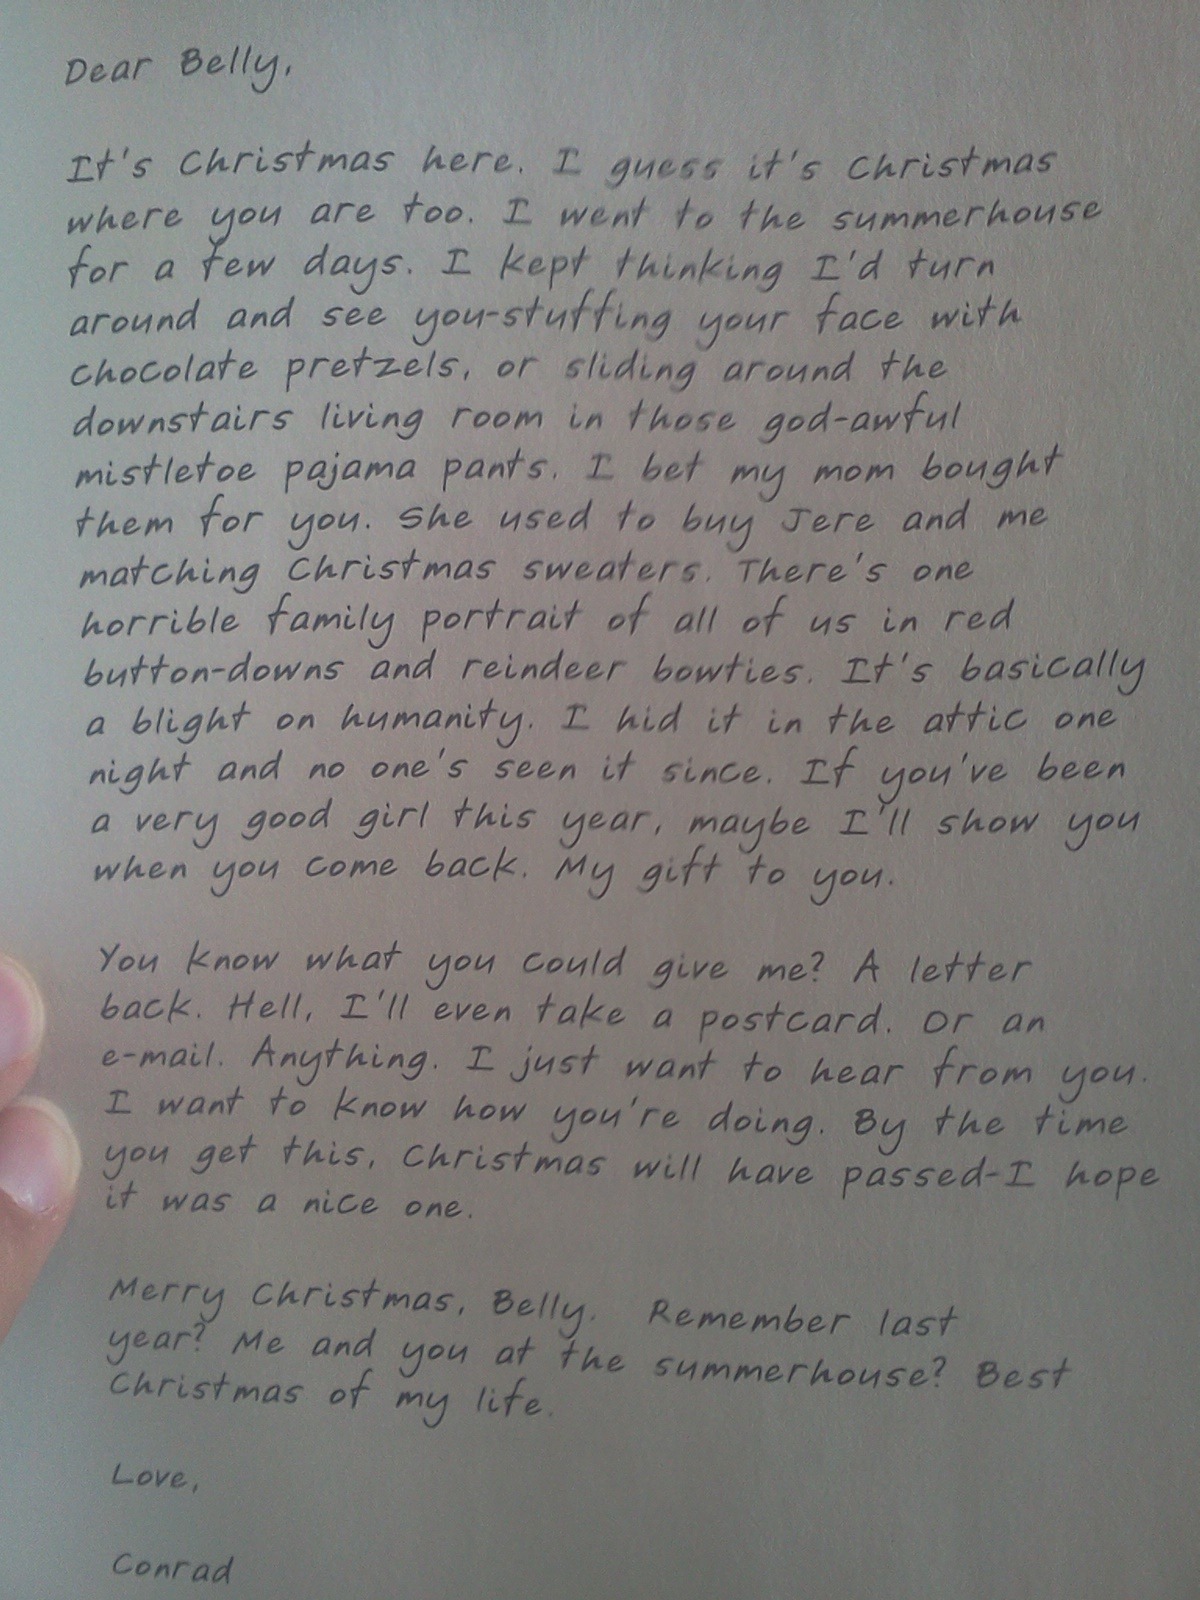 Dear Belly,
It's Christmas here. I guess it's Christmas
where you are too. I went to the summerhouse
for a few days. I kept thinking I'd turn
around and see you-stuffing your face with
chocolate pretzels, or sliding around the
downstairs living room in those god-awful
mistletoe pajama pants. I bet my mom bought
them for you. She used to buy Jere and me
matching Christmas sweaters. There's one
horrible family portrait of all of us in red
button-downs and reindeer bowties. It's basically
a blight on humanity. I hid it in the attic one
night and no one's seen it since. If you've been
a very good girl this year, maybe I'll show you
when you come back. My gift to you.
You know what you could give me? A letter
back. Hell, I'll even take a postcard. Or an
e-mail. Anything. I just want to hear from you.
I want to know how you're doing. By the time
you get this, Christmas will have passed-I hope
it was a nice one.
Merry Christmas, Belly. Remember last
year? Me and you at the summerhouse? Best
Christmas of my life.
Love,
Conrad